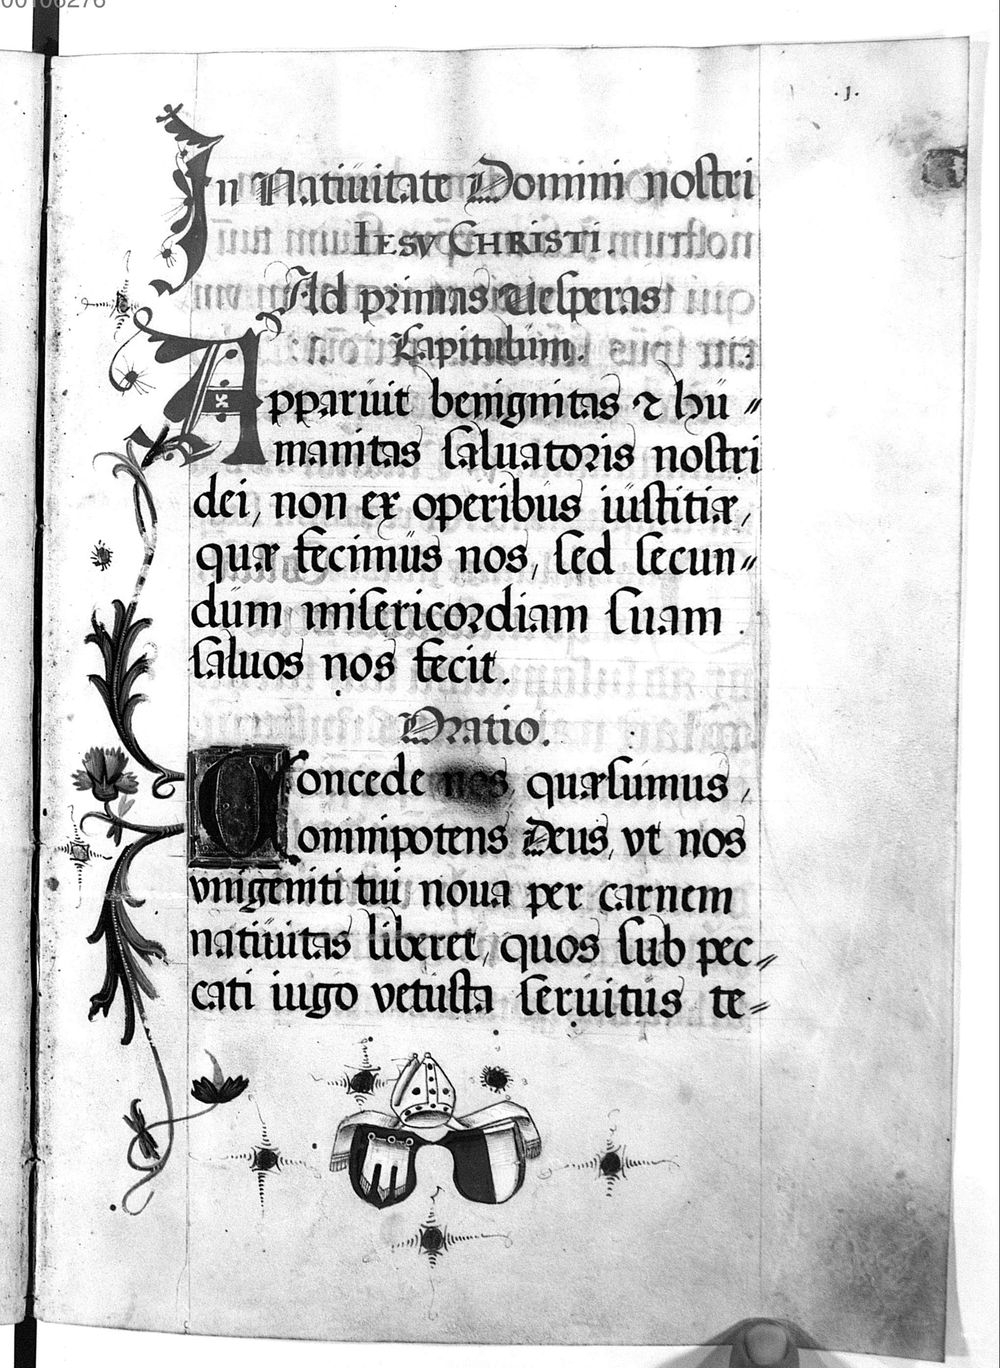 00106276
.1.
In Natiuitate Domini nostri
IESV CHRISTI.
Ad primas Uesperas
Capitulum.
Apparuit benignitas ⁊ hu〃
manitas saluatoris nostri
dei, non ex operibus iustitiæ,
quæ fecimus nos, sed secun〃
dum misericordiam suam
saluos nos fecit.
Oratio.
Concede nos, quæsumus,
omnipotens Deus, vt nos
vnigeniti tui noua per carnem
natiuitas liberet, quos sub pec〃
cati iugo vetusta seruitus te〃